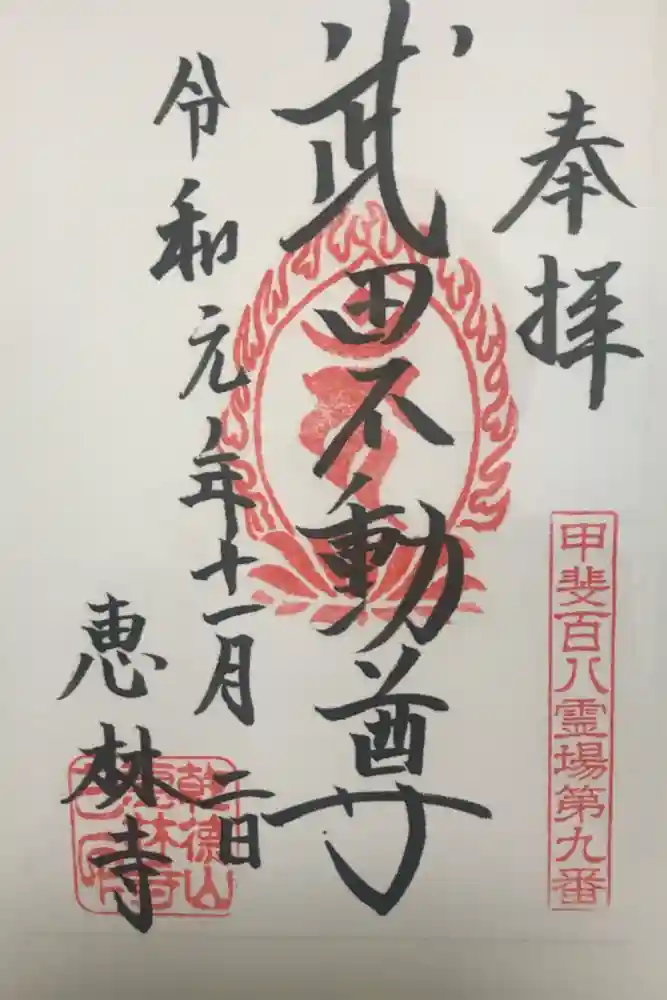 奉拝
甲斐百八霊場第九番
武田不動尊
令和元年十一月二日
恵林寺
乾徳山
恵林寺